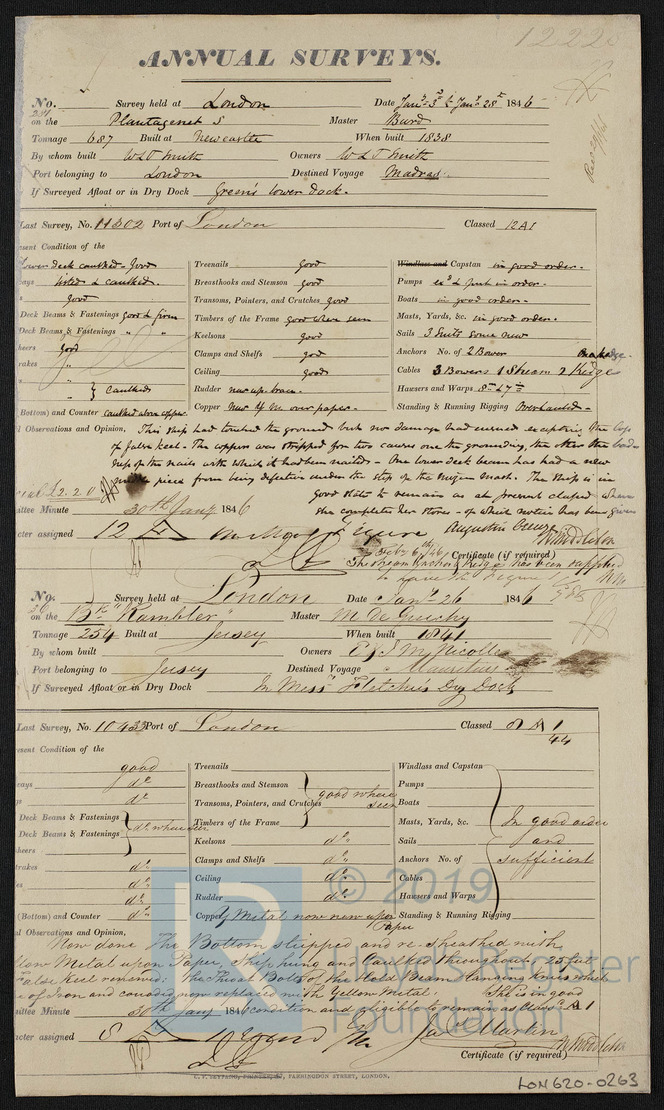 1222
ANNUAL SURVEYS.
No. Survey held at London Date Jany. 3d & Jany. 28th 1846
on the Plantagenet S Master Bird
Tonnage 687 Built at Newcastle When built 1838
By whom built W & T Smith Owners W & T Smith
Port belonging to London Destined Voyage Madras
If Surveyed Afloat or in Dry Dock Green's lower Dock.
Last Survey, No. 11302 Port of London Classed 12A1
sent Condition of the
Lower Deck caulked - Good Treenails Good Windlass and Capstan in good order.
listed & caulked. Breasthooks and Stemson good Pumps in order.
Good Transoms, Pointers, and Crutches good Boats in good order.
Deck Beams & Fastenings Good & firm Timbers of the Frame good where seen Masts, Yards, &c. in good order.
Deck Beams & Fastenings " " Keelsons good Sails 3 Suits some new
heers Good Clamps and Shelfs good Anchors No. of 2 Bower
rakes " Ceiling good Cables 3 Bowers 1 Stream 2 Kedge
" } caulked Rudder new up. brace. Hausers and Warps
Bottom) and Counter caulked above copper Copper New Y M over paper. Standing & Running Rigging Overhauled.
l Observations and Opinion, This Ship had touched the ground but no damage had ensued excepting the loss
of false keel. The copper was stripped for two causes one the grounding, the other the bad-
ness of the nails with which it had been nailed. One lower deck beam has had a new
middle piece from being defective under the step of the mizen mast. The Ship is in
£2.2.0 good state to remain as at present classed when
ttee Minute 30th Jany. 1846 she completes her stores - of which notice has been given
cter assigned 12 A Augustin Creuze
Certificate (if required)
The Stream Anchor & Kedge has been supplied
No. Survey held at London Date Jany. 26 1846
on the Bk "Rambler" Master M De Gruchy
Tonnage 254 Built at Jersey When built 1841
By whom built Owners E & J M Nicolle
Port belonging to Jersey Destined Voyage Mauritius
If Surveyed Afloat or in Dry Dock In Messrs Fletcher's Dry Dock
Last Survey, No. 10433 Port of London Classed A 1
44
esent Condition of the
good Treenails Windlass and Capstan
ways do. Breasthooks and Stemson Pumps
do. Transoms, Pointers, and Crutches good where seen Boats
Deck Beams & Fastenings do. where seen Timbers of the Frame Masts, Yards, &c. In good order
Deck Beams & Fastenings Keelsons do. Sails and
heers Clamps and Shelfs do. Anchors No. of sufficient
trakes do. Ceiling do. Cables
do. Rudder do. Hausers and Warps
(Bottom) and Counter do. Copper Y Metal now new upon Paper Standing & Running Rigging
al Observations and Opinion,
Now done The Bottom stripped and re-sheathed with
llow Metal upon Paper, Ship hung and Caulked throughout, 25 feet
False Keel renewed: The Throat Bolts of the Hold Beam Hanging Knees which
e of Iron and corroded now replaced with Yellow Metal. She is in good
ittee Minute 30th Jany 1846 condition and eligible to remain as Class A 1
acter assigned 8 A Jas. Martin
Certificate (if required)
FARRINGDON STREET, LONDON.
LR © 2019
Lloyd's Register
Foundation
LON620-0263